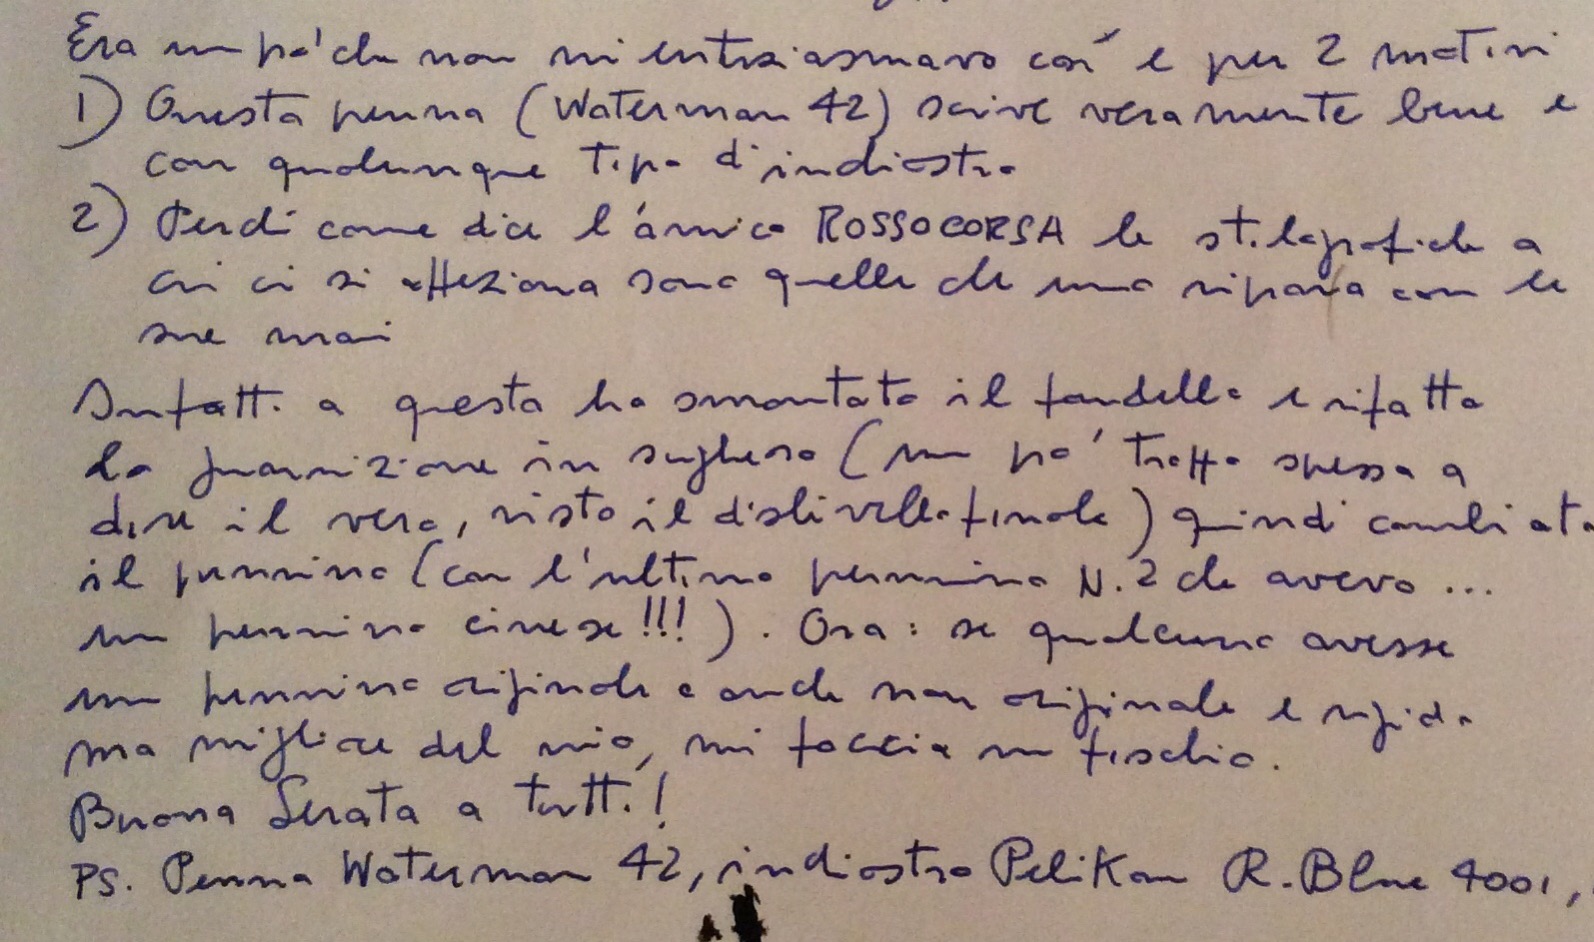 Era un po' che non mi entusiasmavo così e per 2 motivi
1) Questa penna (Waterman 42) scrive veramente bene e
con qualunque tipo d'inchiostro
2) Perché come dice l'amico ROSSOCORSA le stilografiche a
cui ci si affeziona sono quelle che uno ripara con le
sue mani
Infatti a questa ho smontato il fondello e rifatto
la guarnizione in sughero (un po' troppo spessa a
dire il vero, visto il dislivello finale) quindi cambiato
il pennino (con l'ultimo pennino N.2 che avevo ...
un pennino cinese!!!). Ora: se qualcuno avesse
un pennino originale o anche non originale e rigido
ma migliore del mio, mi faccia un fischio.
Buona Serata a tutti!
PS. Penna Waterman 42, inchiostro Pelikan R.Blue 4001,